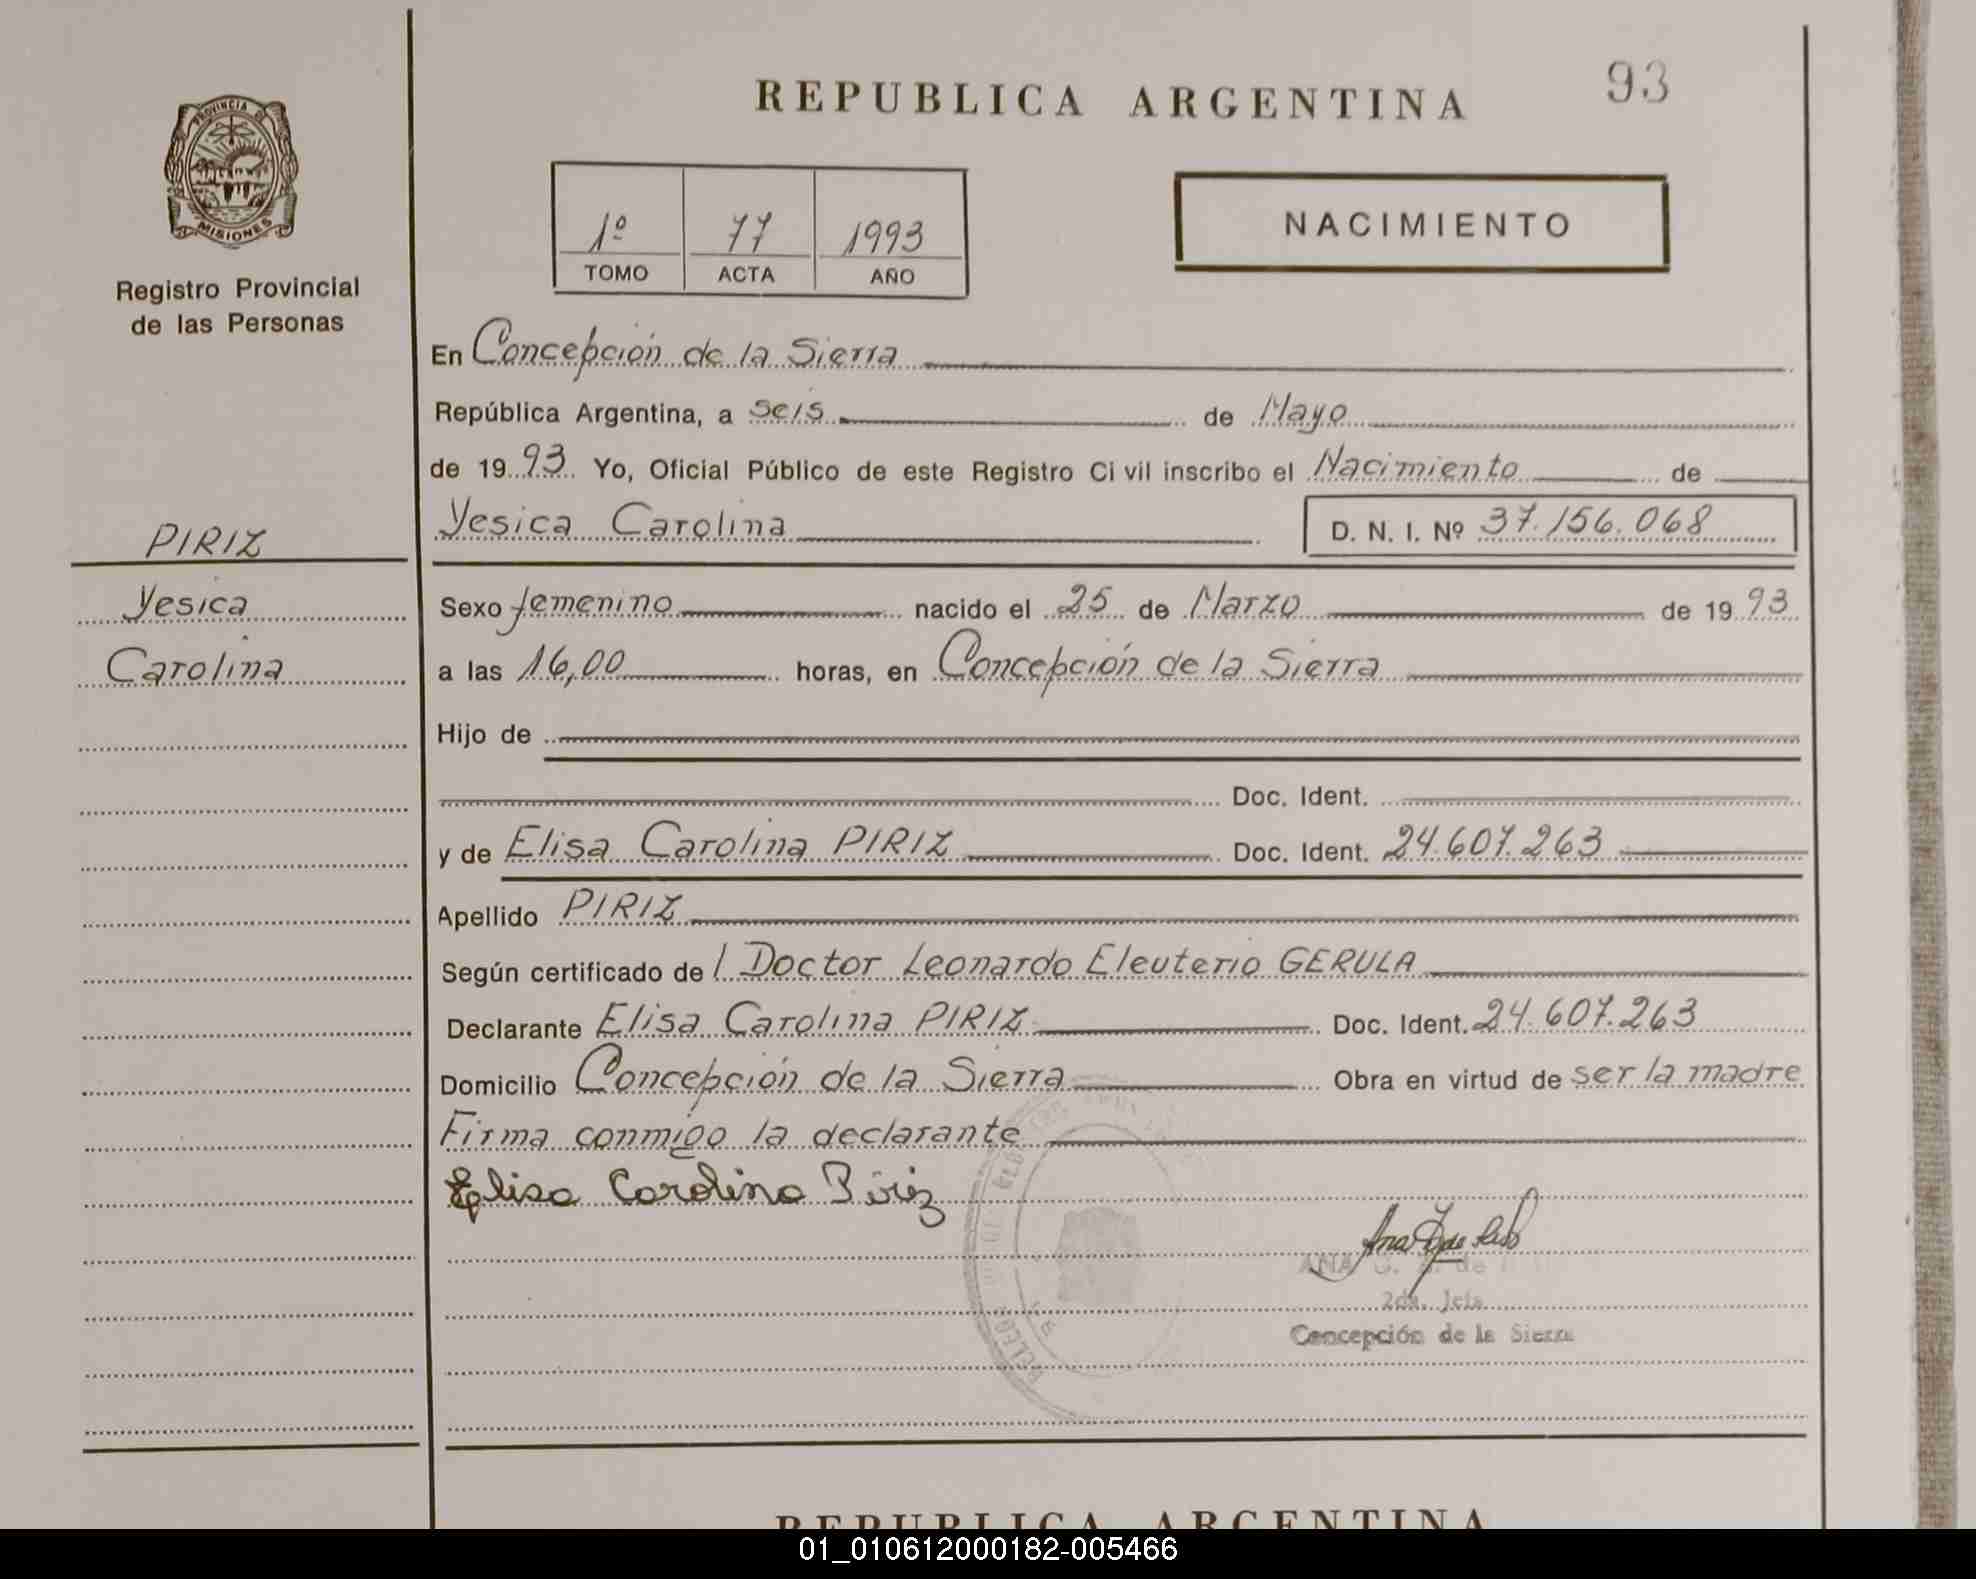 REPUBLICA ARGENTINA
93
PROVINCIA DE
MISIONES
Registro Provincial
de las Personas
1º 77 1993
TOMO ACTA AÑO
NACIMIENTO
En Concepción de la Sierra
República Argentina, a seis de Mayo
de 19 93 Yo, Oficial Público de este Registro Civil inscribo el Nacimiento de
Yesica Carolina D. N. I. Nº 37.156.068
PIRIZ
Yesica
Carolina
Sexo femenino nacido el 25 de Marzo de 19 93
a las 16,00 horas, en Concepción de la Sierra
Hijo de
Doc. Ident.
y de Elisa Carolina PIRIZ Doc. Ident. 24.607.263
Apellido PIRIZ
Según certificado del Doctor Leonardo Eleuterio GERULA
Declarante Elisa Carolina PIRIZ Doc. Ident. 24.607.263
Domicilio Concepción de la Sierra Obra en virtud de ser la madre
Firma conmigo la declarante
Elisa Carolina Piriz
2da. Jefa
Concepción de la Sierra
REPUBLICA ARGENTINA
01_010612000182-005466